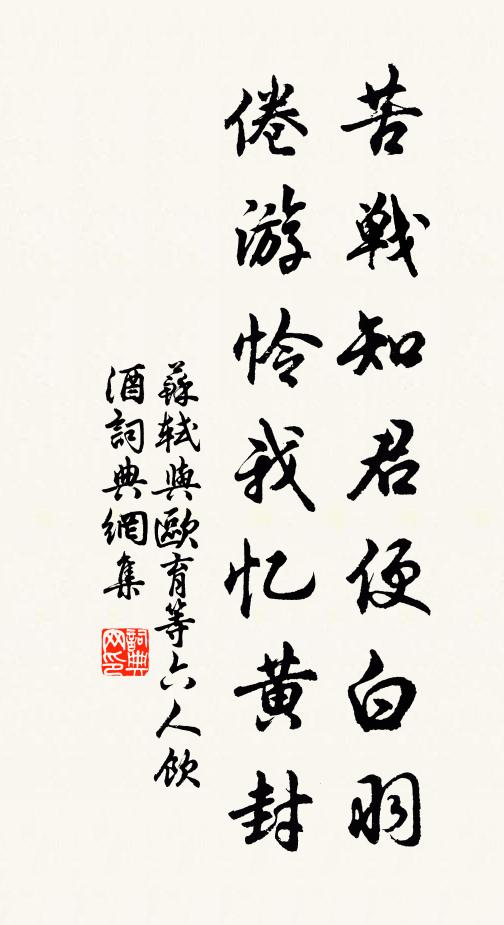 苦戦知君便白羽
倦游怜我忆黄封
蘇軾與歐育等六人飲
酒詞典網集
詞典网印